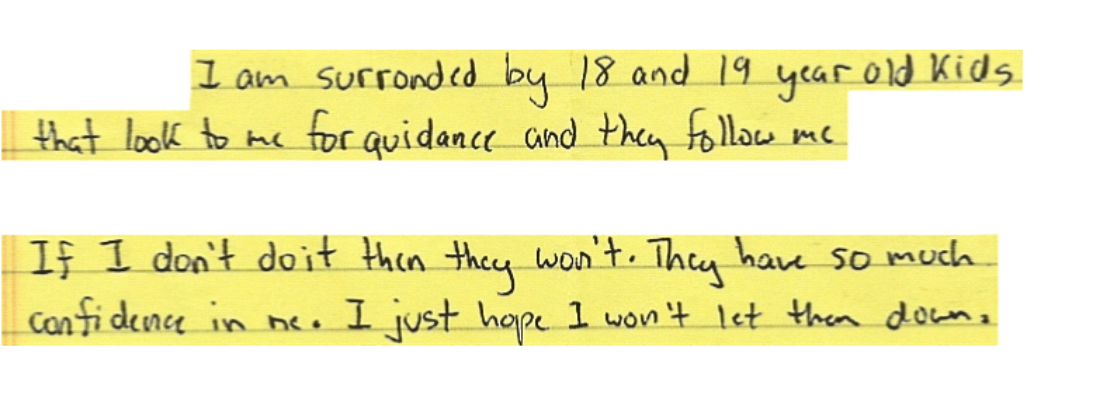 I am surronded by 18 and 19 year old kids
that look to me for guidance and they follow me
If I don't do it then they won't. They have so much
confidence in me. I just hope I won't let them down.